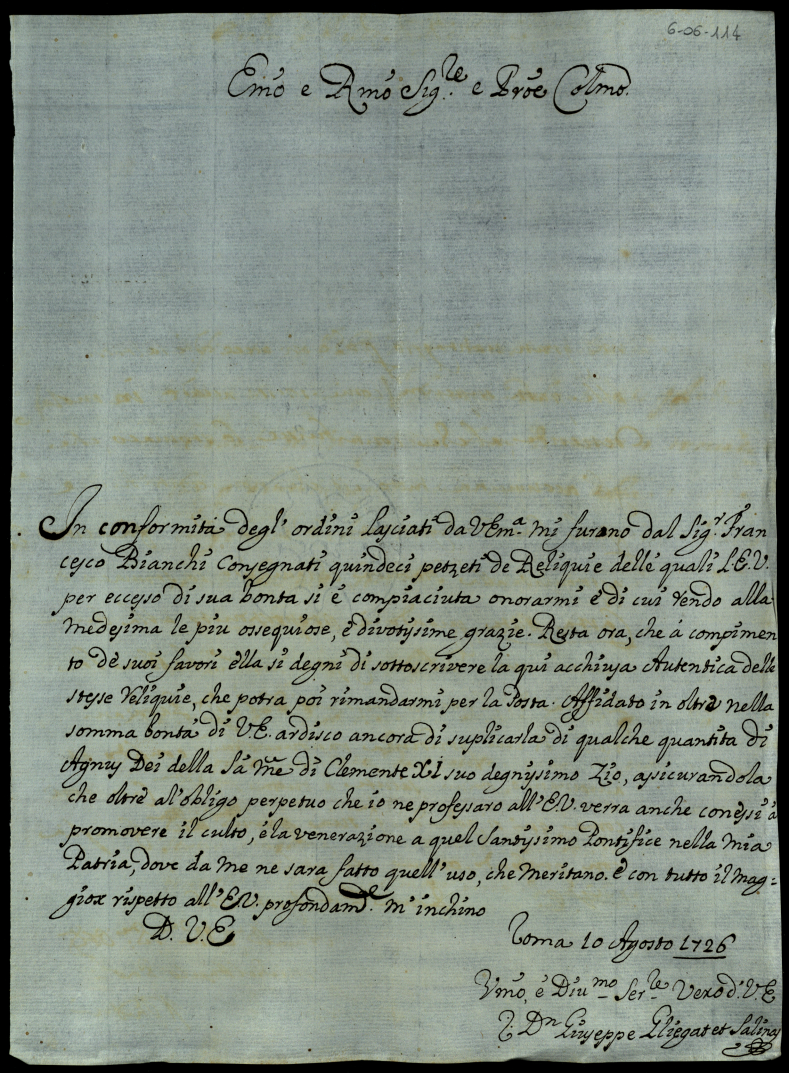 6-06-114
Emo e Rmo Sig.le e Prōe Colmo.
In conformita degl' ordini lasciati da VEm.a mi furono dal Sig.r Fran
cesco Bianchi consegnati quindeci petzeti de Reliquie delle quali l.E.V.
per eccesso di sua bonta si é compiaciuta onorarmi é di cui rendo alla
medesima le piu ossequiose, é divotissime grazie. Resta ora, che á compimen
to de suoi favori élla si degni di sottoscrivere la qui acchiusa Autentica delle
stesse reliquie, che potra poi rimandarmi per la Posta. Affidato in oltre nella
somma bontá di VE. ardisco ancora di suplicarla di qualche quantita di
Agnus Dei della Sá Me di Clemente XI suo degnissimo Zio, assicurandola
che oltre al'obligo perpetuo che io ne professaro all'E.V. verra anche con essi á
promovere il culto, é la venerazione a quel Santissimo Pontifice nella mia
Patria, dove da me ne sara fatto quell' uso, che meritano. é con tutto il mag=
gior rispetto all' E.V. profondam.te m'inchino
D. V. E
Roma 10 Agosto 1726
Vmo, é Diu.mo Ser.le Vero d. V. E
Dn Giuseppe Eliegat et Salinas